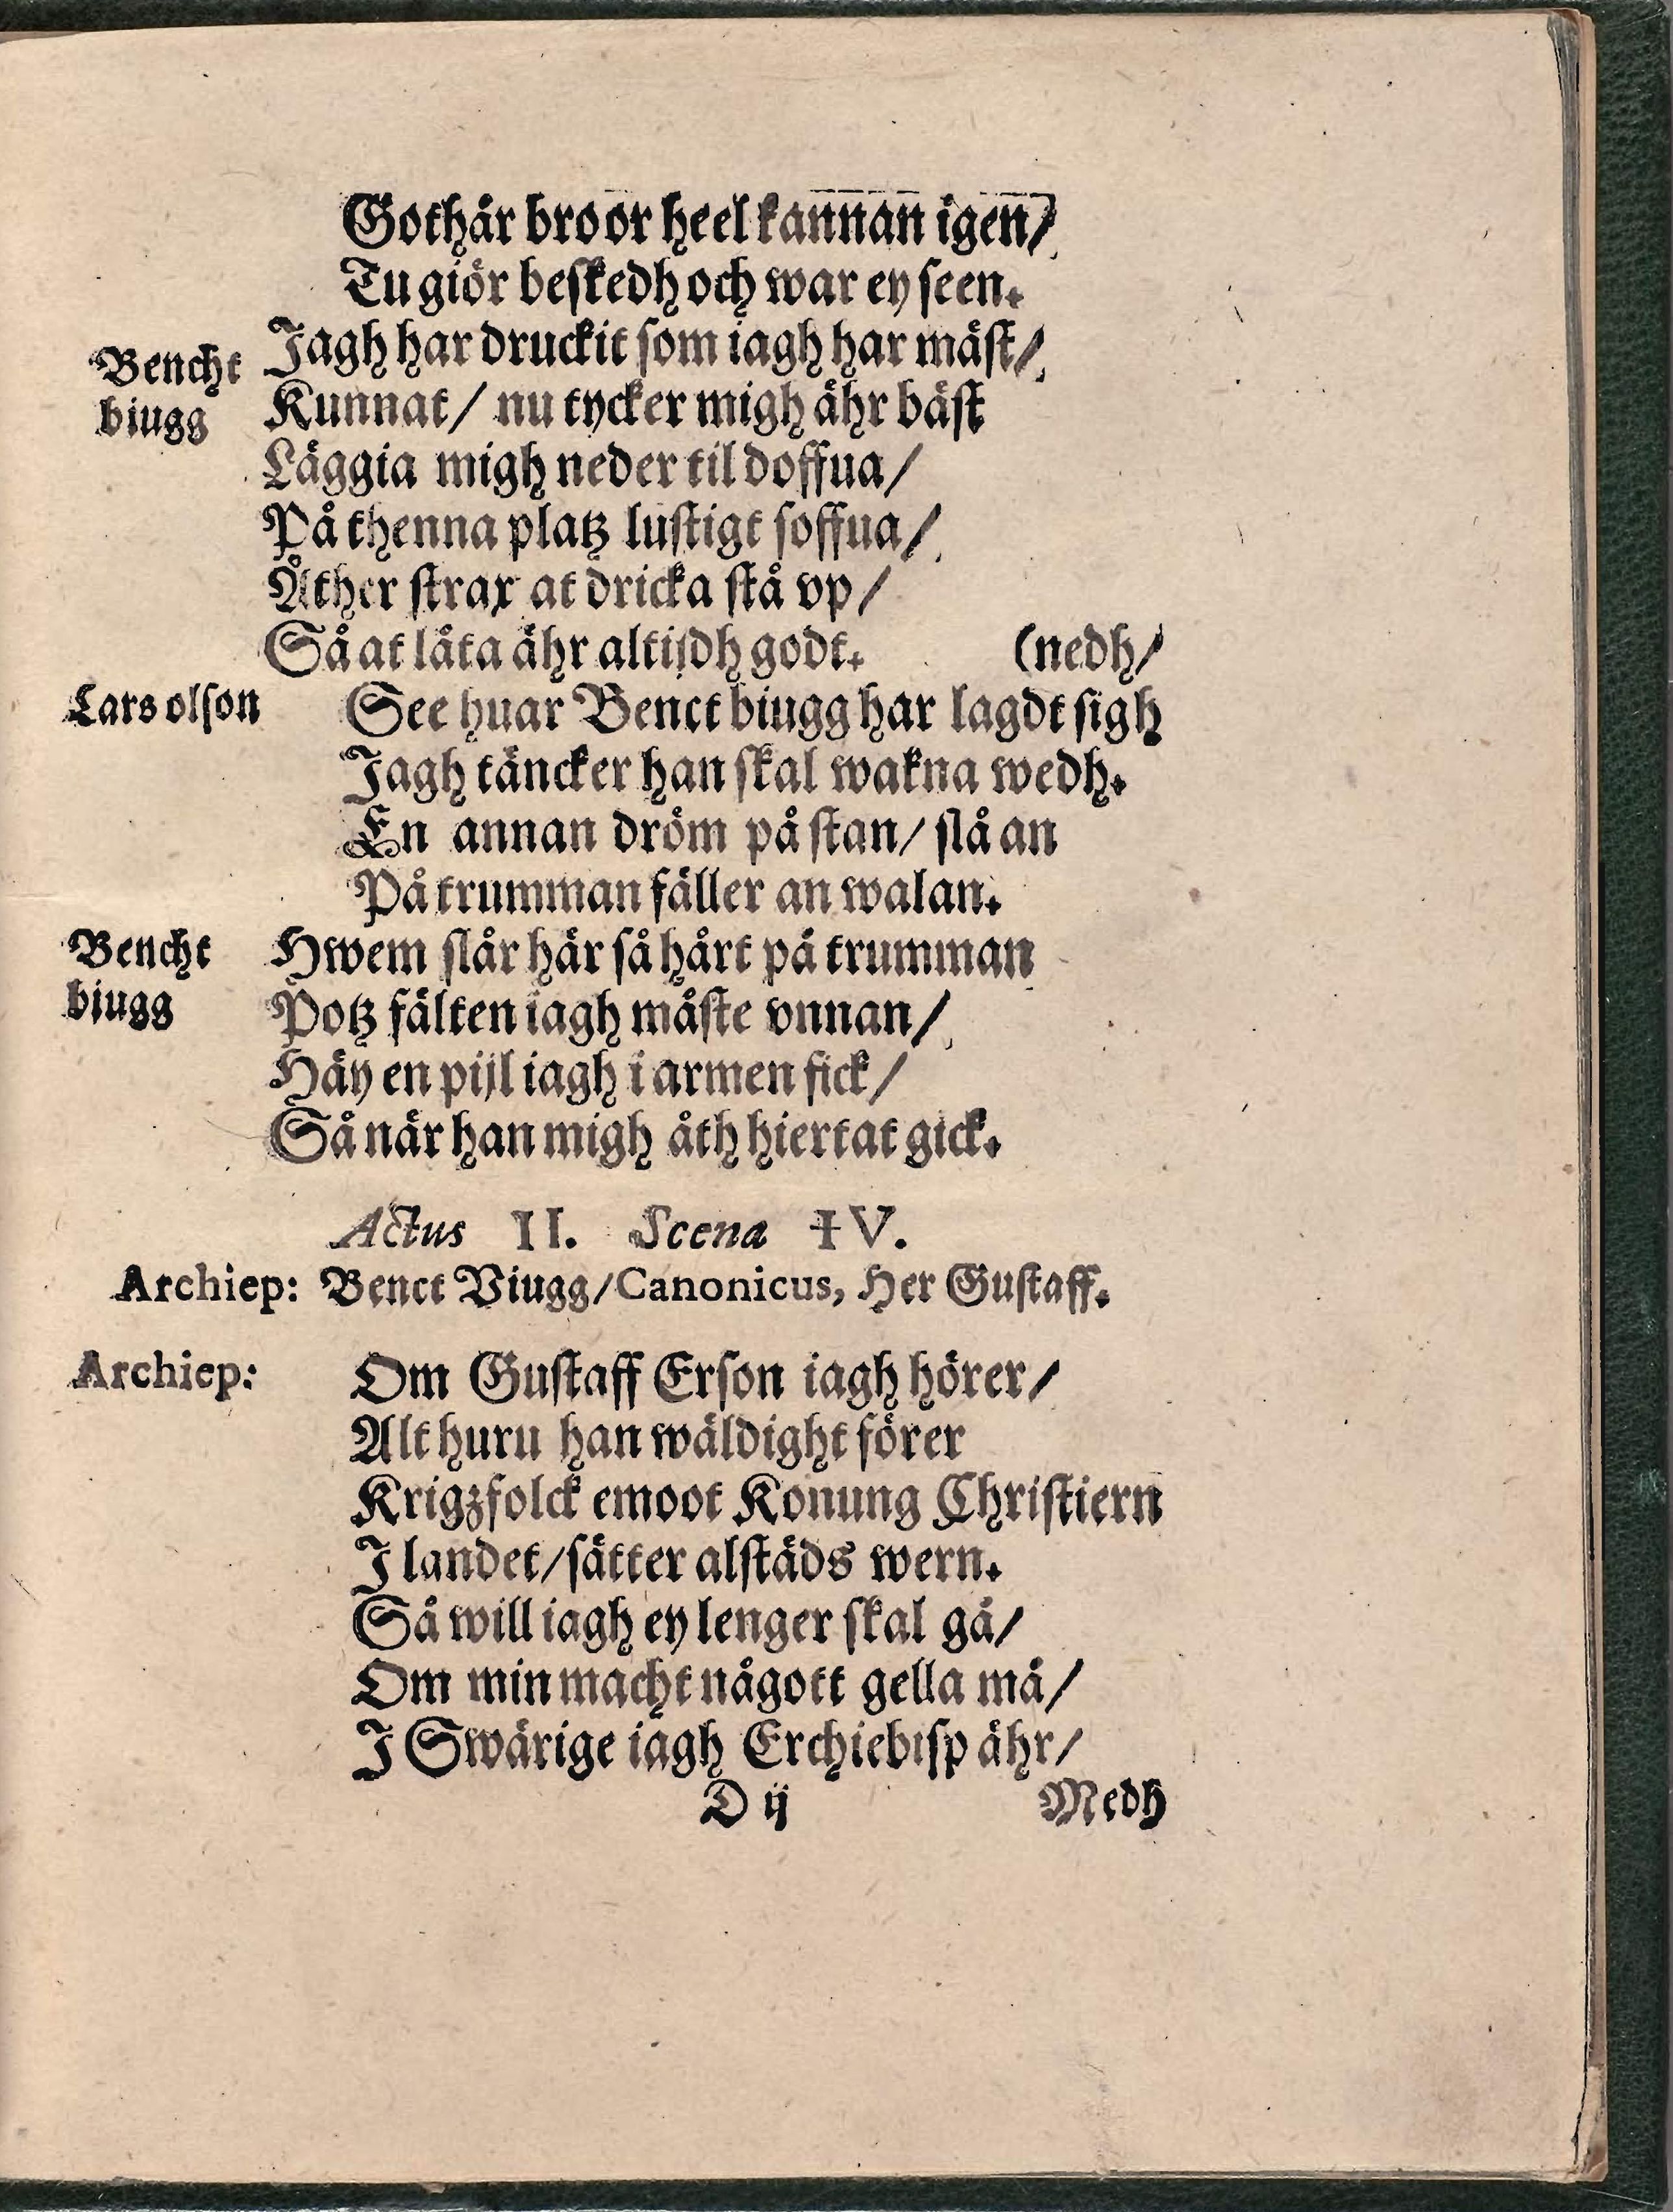 Gothår broor heel kannan igen/
Tu giör beskedh och war ey seen.
Bencht biugg Jagh har druckit som iagh har mäst/
Kunnat/ nu tycker migh ähr bäst
Läggia migh neder til doffua/
På thenna platz lustigt soffua/
Åther strax at dricka stå vp/
Så at låta ähr altijdh godt. (nedh/
Lars olson See huar Benct biugg har lagdt sigh
Jagh täncker han skal wakna wedh.
En annan dröm på stan/ slå an
På trumman fäller an walan.
Bencht biugg Hwem slår här så hårt på trumman
Potz fälten iagh måste vnnan/
Häy en pijl iagh i armen fick/
Så när han migh åth hiertat gick.
Actus II. Scena IV.
Archiep: Benct Biugg/Canonicus, Her Gustaff.
Archiep: Om Gustaff Erson iagh hörer/
Alt huru han wäldight förer
Krigzfolck emoot Konung Christiern
J landet/sätter alstäds wern.
Så will iagh ey lenger skal gå/
Om min macht någott gella må/
J Swärige iagh Erchiebisp ähr/
D ij Medh